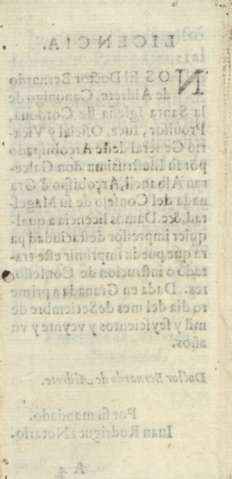 LICENCIA.
NOS El Doctor Bernardo
de Aldrete, Canonigo de
la Santa Iglesia de Cordoua,
Prouisor, Iuez, Oficial y Vica-
rio General deste Arçobispado
por su Illustrissima don Galce-
ran Albanell, Arçobispo d̃ Gra
nada del Consejo de su Magest-
tad, &c. Damos licencia a qual-
quier impressor desta ciudad pa
ra que pueda imprimir este tra-
tado o instrucion de Confesso-
res. Dada en Granada a prime
ro dia del mes de Setiembre de
mil y seyscientos y veynte y vn
años.
Doctor Bernardo de Aldrete.
Por su mandado.
Iuan Rodriguez Notario.
A